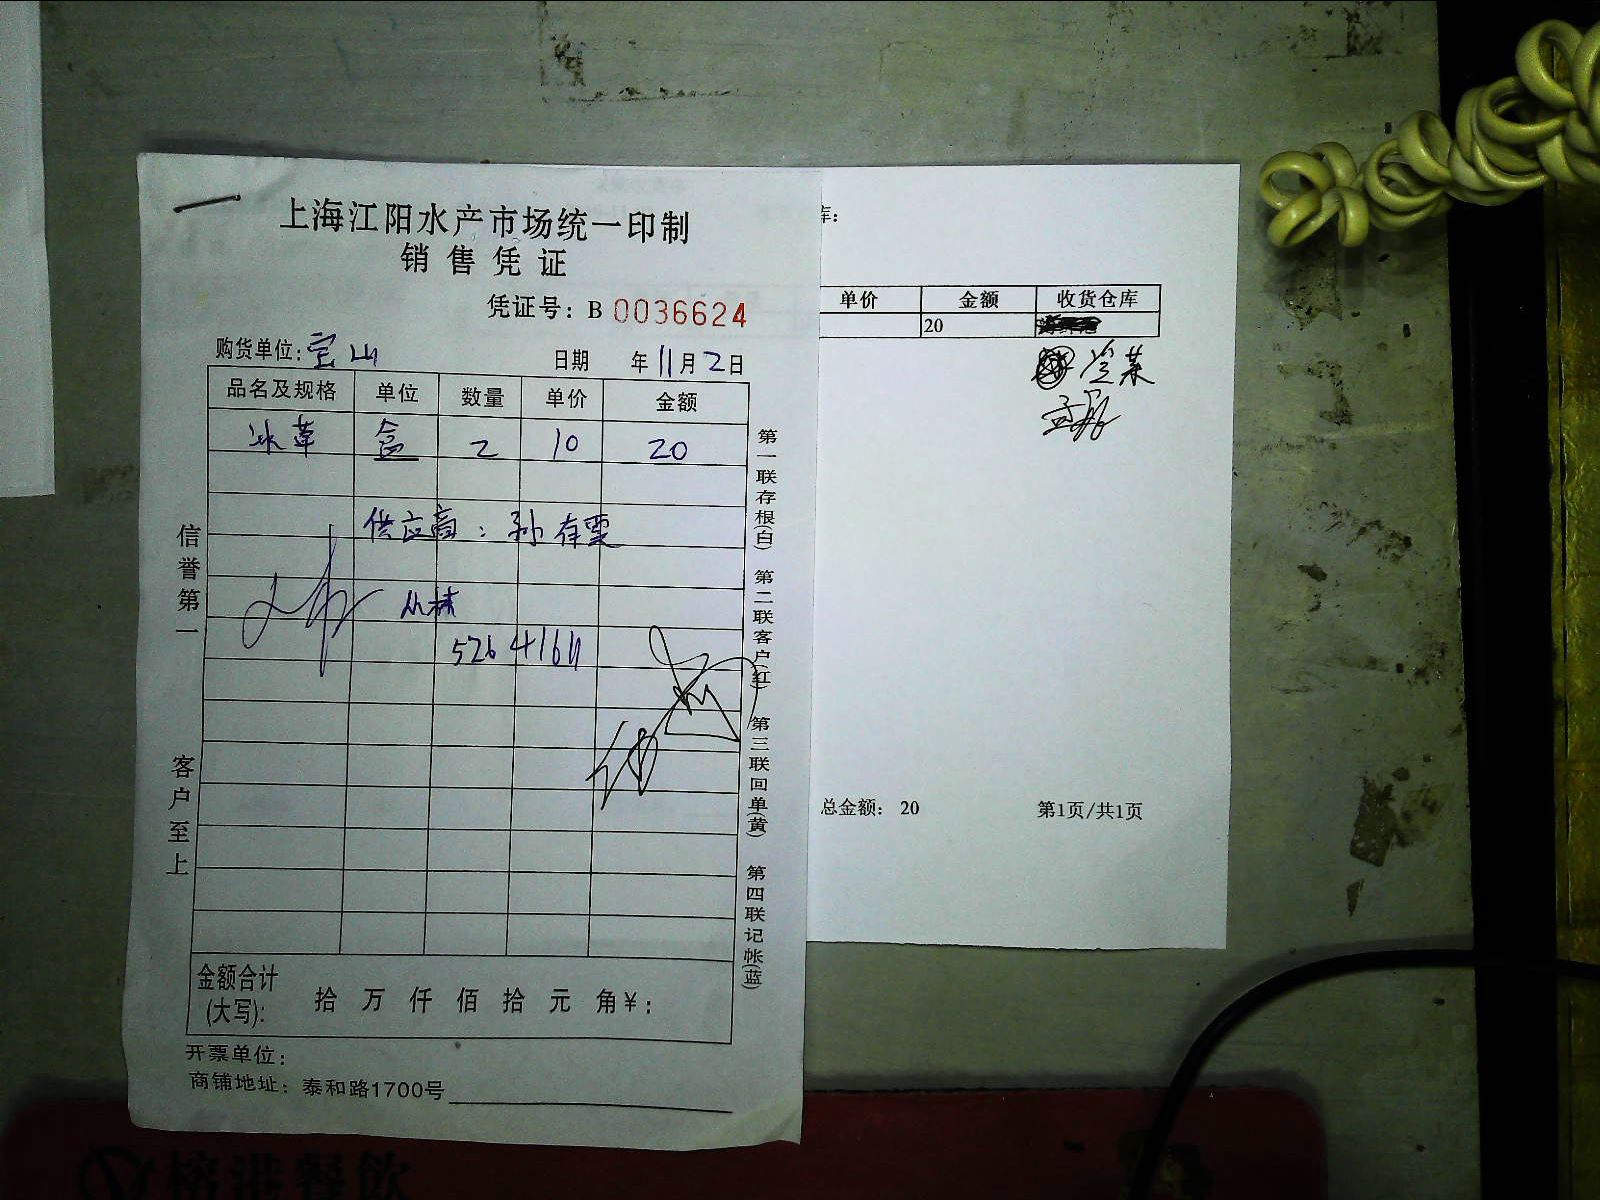 上海江阳水产市场统一印制
销售凭证
凭证号：B 0036624
购货单位：宝山 日期 年11月2日
品名及规格 单位 数量 单价 金额
冰草 盒 2 10 20
供应商：孙存雯
丛林
5264164
金额合计(大写)： 拾 万 仟 佰 拾 元 角￥：
开票单位：
商铺地址：泰和路1700号
信誉第一
客户至上
第一联存根(白) 第二联客户(红) 第三联回单(黄) 第四联记帐(蓝)
库：
单价 金额 收货仓库
20
冷菜
总金额： 20 第1页/共1页
榕港餐飲